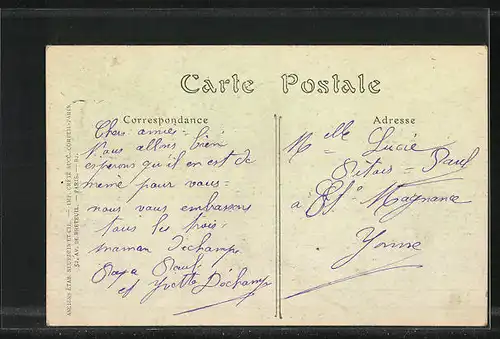 Carte Postale
Correspondance
Adresse
Chers amies =
Nous allons bien
esperons qu'il en est de
meme pour vous =
nous vous embrassons
tous les trois
maman Déchamp
Papa Paul
et Yvette Déchamp
Melle Lucie
Paul
à St Magnance
Yonne